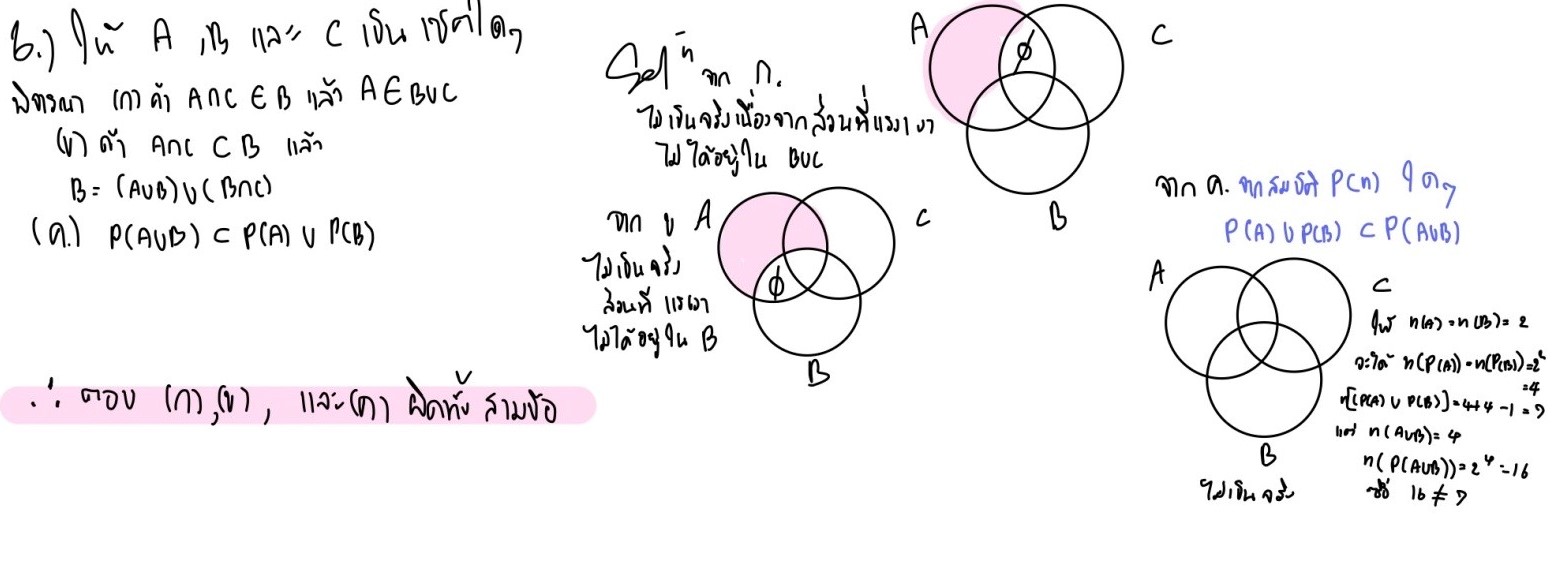 6.) ให้ A ,B และ C เป็นเซตใดๆ
พิจารณา (ก) ถ้า A∩C ∈ B แล้ว A ∈ B∪C
(ข) ถ้า A∩C ⊂ B แล้ว
B = (A∪B)∪(B∩C)
(ค.) P(A∪B) ⊂ P(A) ∪ P(B)
∴ ตอบ (ก),(ข), และ(ค) ผิดทั้ง สามข้อ
Solⁿ จาก ก.
ไม่เป็นจริงเนื่องจากส่วนที่แรเงา
ไม่ได้อยู่ใน B∪C
A
C
∅
B
จาก ข
ไม่เป็นจริง
ส่วนที่ แรเงา
ไม่ได้อยู่ใน B
A
C
∅
B
จาก ค. จากสมบัติ P(n) ใดๆ
P(A) ∪ P(B) ⊂ P(A∪B)
A
C
B
ไม่เป็นจริง
ให้ n(A) = n(B) = 2
จะได้ n(P(A)) = n(P(B)) = 2²
= 4
n[(P(A) ∪ P(B)] = 4+4 -1 = 7
แต่ n(A∪B) = 4
n(P(A∪B)) = 2⁴ = 16
ซึ่ง 16 ≠ 7